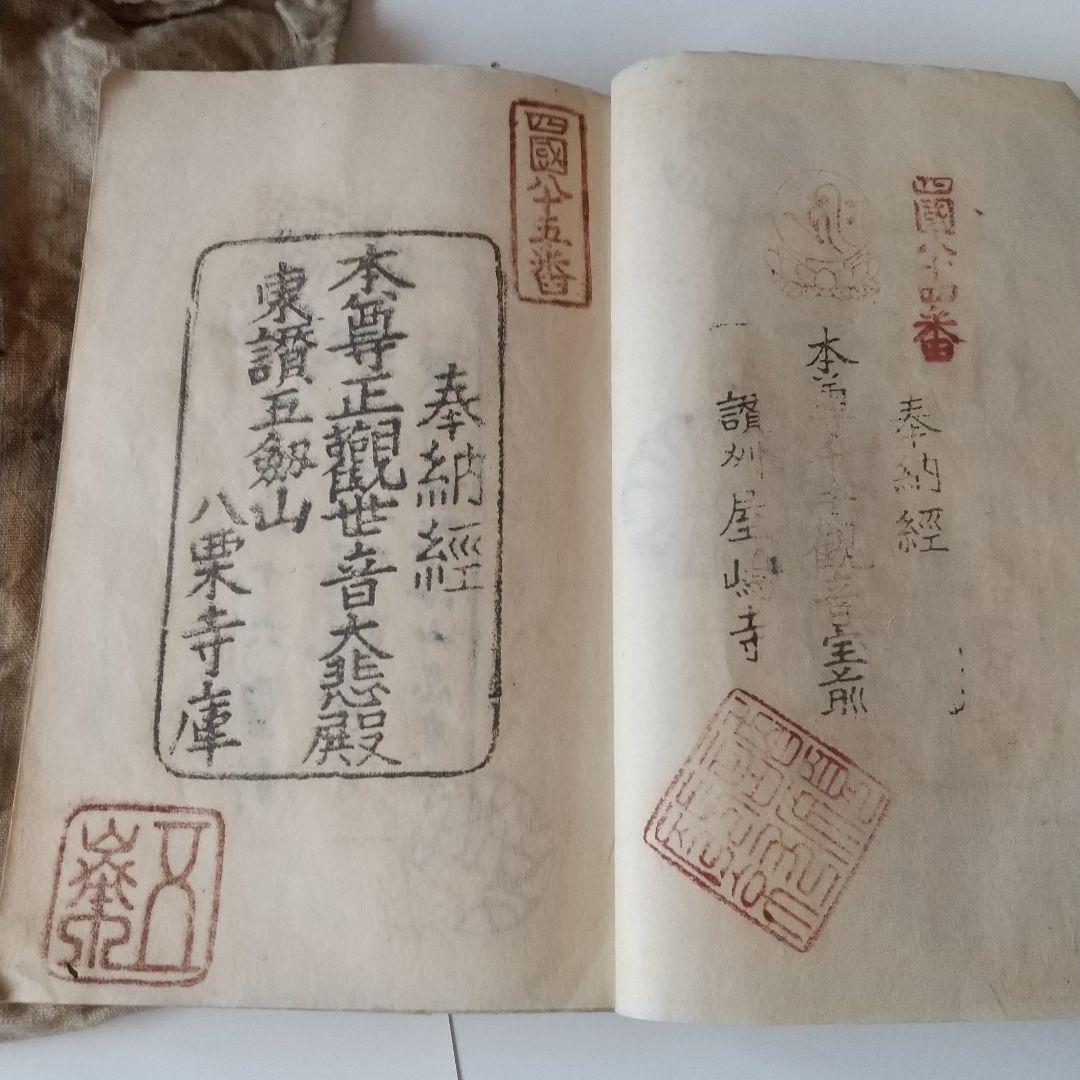 四國八十四番
奉納經
本尊千手觀音宝前
讃州屋嶋寺
四國八十五番
奉納經
本尊正觀世音大悲殿
東讃五劔山
八栗寺庫